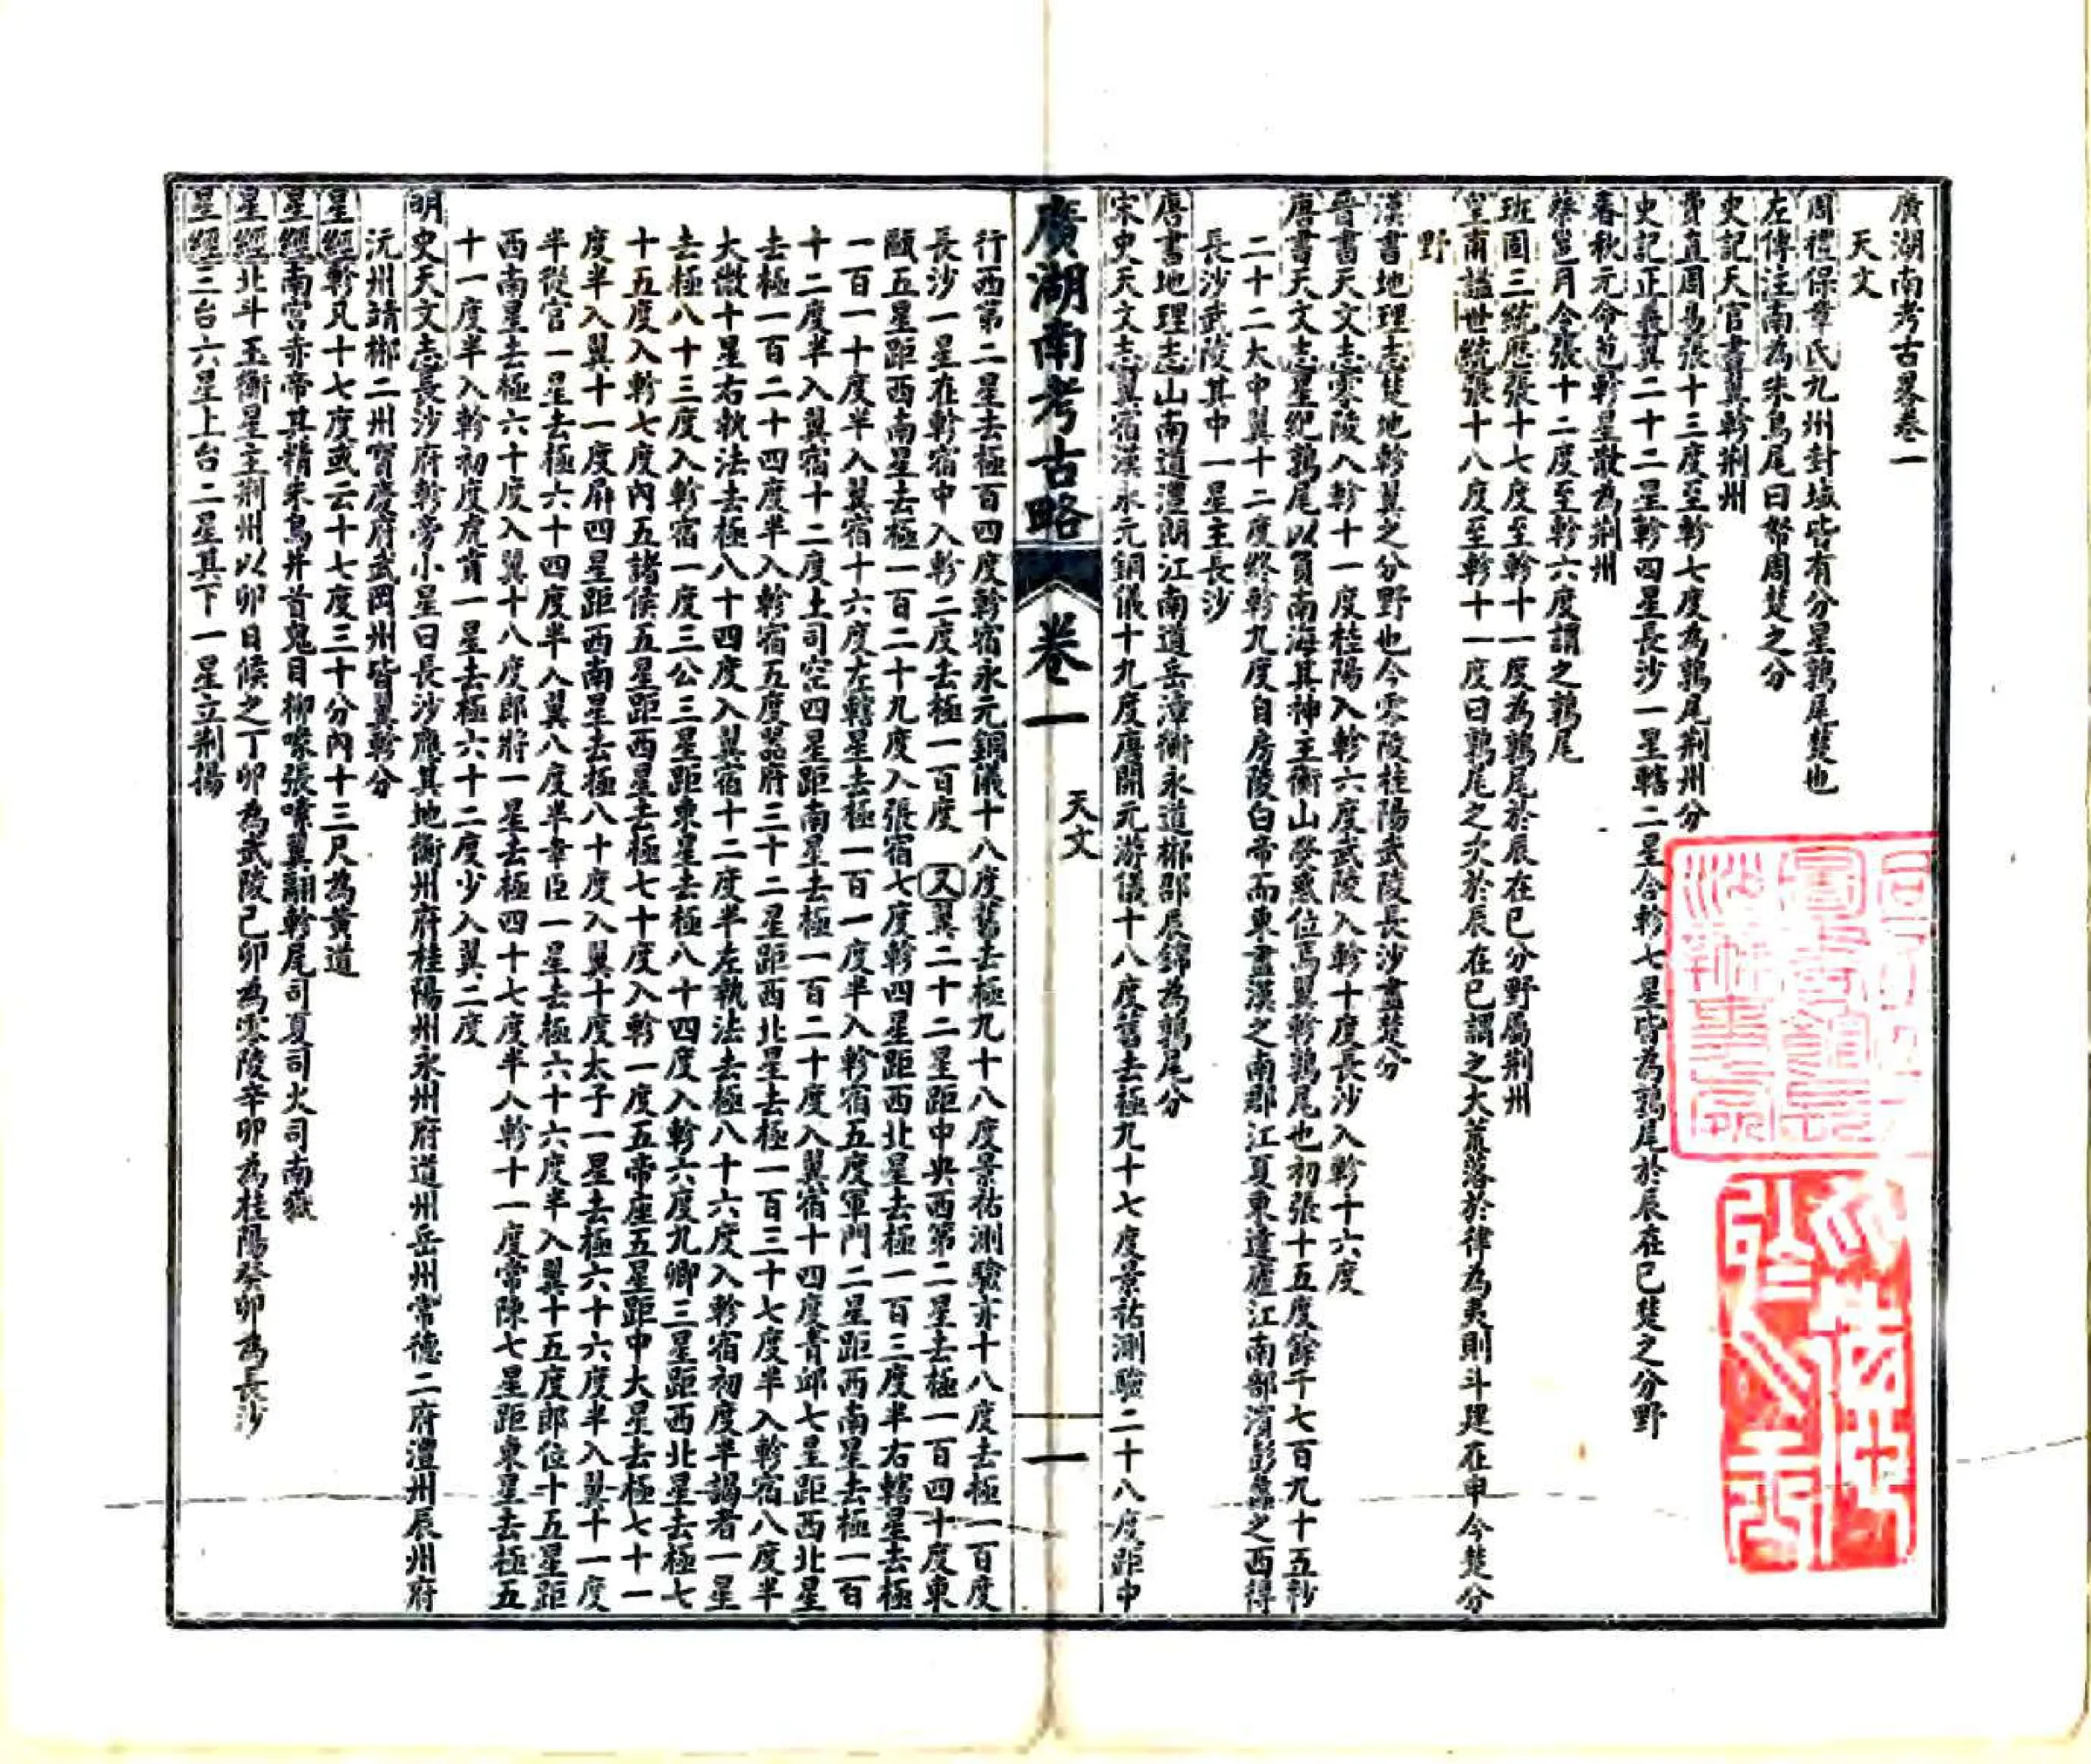 廣湖南考古畧卷一
天文
周禮保章氏九州封域皆有分星鶉尾楚也
左傳注南為朱鳥尾曰帑周楚之分
史記天官書翼軫荆州
費直周易張十三度至軫七度為鶉尾荆州分
史記正義翼二十二星軫四星長沙一星轄二星合軫七星皆為鶉尾於辰在巳楚之分野
春秋元命苞軫星散為荆州
蔡邕月令張十二度至軫六度謂之鶉尾
班固三統厯張十七度至軫十一度為鶉尾於辰在巳分野屬荆州
皇甫謐世統張十八度至軫十一度曰鶉尾之次於辰在巳謂之大荒落於律為夷則斗建在申今楚分
野
漢書地理志楚地軫翼之分野也今零陵桂陽武陵長沙盡楚分
晉書天文志零陵入軫十一度桂陽入軫六度武陵入軫十度長沙入軫十六度
唐書天文志星紀鶉尾以負南海其神主衡山熒惑位焉翼軫鶉尾也初張十五度餘千七百九十五秒
二十二太中翼十二度終軫九度自房陵白帝而東盡漢之南郡江夏東達廬江南部濱彭蠡之西得
長沙武陵其中一星主長沙
唐書地理志山南道澧朗江南道岳潭衡永道郴邵辰錦為鶉尾分
宋史天文志翼宿漢永元銅儀十九度唐開元游儀十八度舊去極九十七度景祐測驗二十八度距中
廣湖南考古略
卷一
天文
一
行西第二星去極百四度軫宿永元銅儀十八度舊去極九十八度景祐測驗亦十八度去極一百度
長沙一星在軫宿中入軫二度去極一百度 又翼二十二星距中央西第二星去極一百四十度東
甌五星距西南星去極一百二十九度入張宿七度軫四星距西北星去極一百三度半右轄星去極
一百一十度半入翼宿十六度左轄星去極一百一度半入軫宿五度軍門二星距西南星去極一百
十二度半入翼宿十二度土司空四星距南星去極一百二十度入翼宿十四度青邱七星距西北星
去極一百二十四度半入軫宿五度器府三十二星距西北星去極一百三十七度半入軫宿八度半
大微十星右執法去極八十四度入翼宿十二度半左執法去極八十六度入軫宿初度半謁者一星
去極八十三度入軫宿一度三公三星距東星去極八十四度入軫六度九卿三星距西北星去極七
十五度入軫七度內五諸侯五星距西星去極七十度入軫一度五帝座五星距中大星去極七十一
度半入翼十一度屏四星距西南星去極八十度入翼十度太子一星去極六十六度半入翼十一度
半從官一星去極六十四度半入翼八度半幸臣一星去極六十六度半入翼十五度郎位十五星距
西南星去極六十度入翼十八度郎將一星去極四十七度半入軫十一度常陳七星距東星去極五
十一度半入軫初度虎賁一星去極六十二度少入翼二度
明史天文志長沙府軫旁小星曰長沙應其地衡州府桂陽州永州府道州岳州常德二府澧州辰州府
沅州靖郴二州寶慶府武岡州皆翼軫分
星經軫凡十七度或云十七度三十分內十三尺為黃道
星經南宮赤帝其精朱鳥井首鬼目柳喙張嗉翼翮軫尾司夏司火司南嶽
星經北斗玉衡星主荆州以卯日候之丁卯為武陵己卯為零陵辛卯為桂陽癸卯為長沙
星經三台六星上台二星其下一星立荆揚